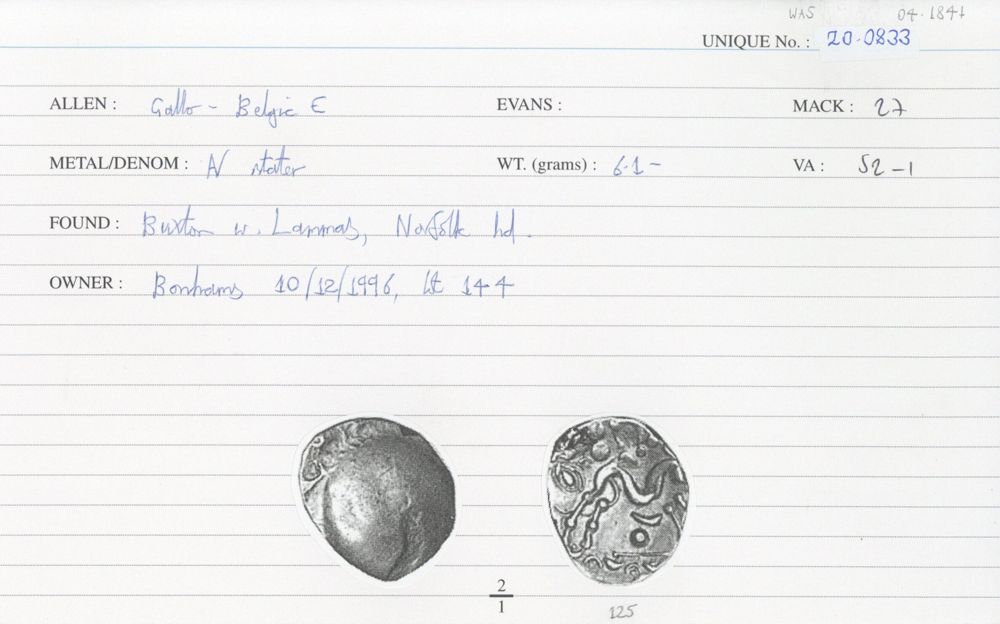 WAS 04.1841
UNIQUE No. : 20.0833
ALLEN : Gallo-Belgic E EVANS : MACK : 27
METAL/DENOM : N stater WT. (grams) : 6.1- VA : 52-1
FOUND : Buxton w. Lammas, Norfolk hd.
OWNER : Bonhams 10/12/1996, lt 144
2
1
125